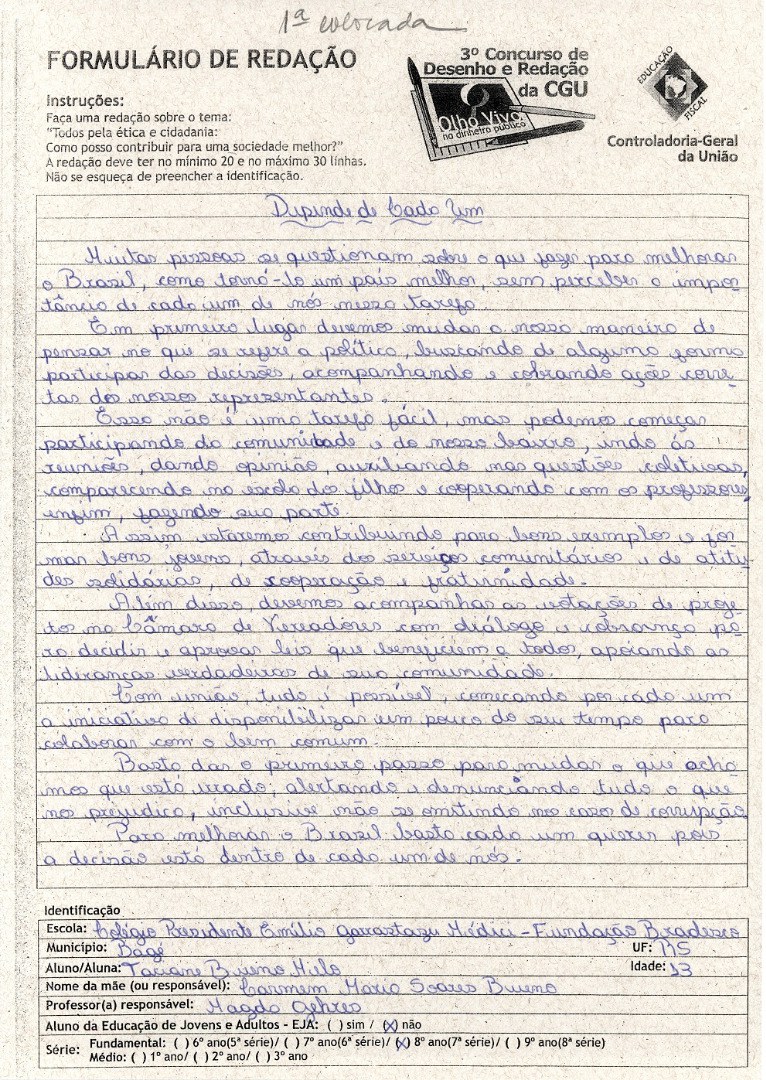 1ª colocada
FORMULÁRIO DE REDAÇÃO
3º Concurso de
Desenho e Redação
da CGU
Olho Vivo
no dinheiro público
EDUCAÇÃO
FISCAL
Controladoria-Geral
da União
Instruções:
Faça uma redação sobre o tema:
"Todos pela ética e cidadania:
Como posso contribuir para uma sociedade melhor?"
A redação deve ter no mínimo 20 e no máximo 30 linhas.
Não se esqueça de preencher a identificação.
Depende de Cada Um
Muitas pessoas se questionam sobre o que fazer para melhorar
o Brasil, como torná-lo um país melhor, sem perceber a impor-
tância de cada um de nós nessa tarefa.
Em primeiro lugar devemos mudar a nossa maneira de
pensar no que se refere a política, buscando de alguma forma
participar das decisões, acompanhando e cobrando ações corre-
tas dos nossos representantes.
Essa não é uma tarefa fácil, mas podemos começar
participando da comunidade e do nosso bairro, indo às
reuniões, dando opinião, auxiliando nas questões coletivas,
comparecendo na escola dos filhos e cooperando com os professores,
enfim, fazendo sua parte.
Assim estaremos contribuindo para bons exemplos e for
mar bons jovens, através dos serviços comunitários e de atitu-
des solidárias, de cooperação e fraternidade.
Além disso, devemos acompanhar as votações de proje-
tos na Câmara de Vereadores com diálogo e cobrança pa-
ra decidir e aprovar leis que beneficiem a todos, apoiando as
lideranças verdadeiras de sua comunidade.
Com união, tudo é possível, começando por cada um
a iniciativa de disponibilizar um pouco do seu tempo para
colaborar com o bem comum.
Basta dar o primeiro passo para mudar o que acha-
mos que está errado, alertando e denunciando tudo o que
nos prejudica, inclusive não se omitindo nos casos de corrupção.
Para melhorar o Brasil basta cada um querer pois
a decisão está dentro de cada um de nós.
Identificação
Escola: Colégio Presidente Emílio Garrastazu Médici - Fundação Bradesco
Município: Bagé UF: RS
Aluno/Aluna: Taciane Bueno Melo Idade: 13
Nome da mãe (ou responsável): Carmem Maria Soares Bueno
Professor(a) responsável: Magda Gehres
Aluno da Educação de Jovens e Adultos - EJA: ( ) sim / (x) não
Série: Fundamental: ( ) 6º ano(5ª série)/ ( ) 7º ano(6ª série)/ (x) 8º ano(7ª série)/ ( ) 9º ano(8ª série)
Médio: ( ) 1º ano/ ( ) 2º ano/ ( ) 3º ano